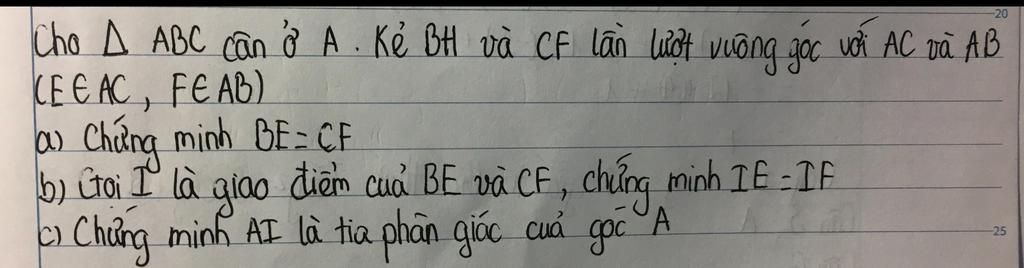 20
Cho Δ ABC cân ở A. Kẻ BH và CF lần lượt vuông góc với AC và AB
(E∈AC, F∈AB)
a) Chứng minh BE=CF
b) Gọi I là giao điểm của BE và CF, chứng minh IE=IF
c) Chứng minh AI là tia phân giác của góc A
25